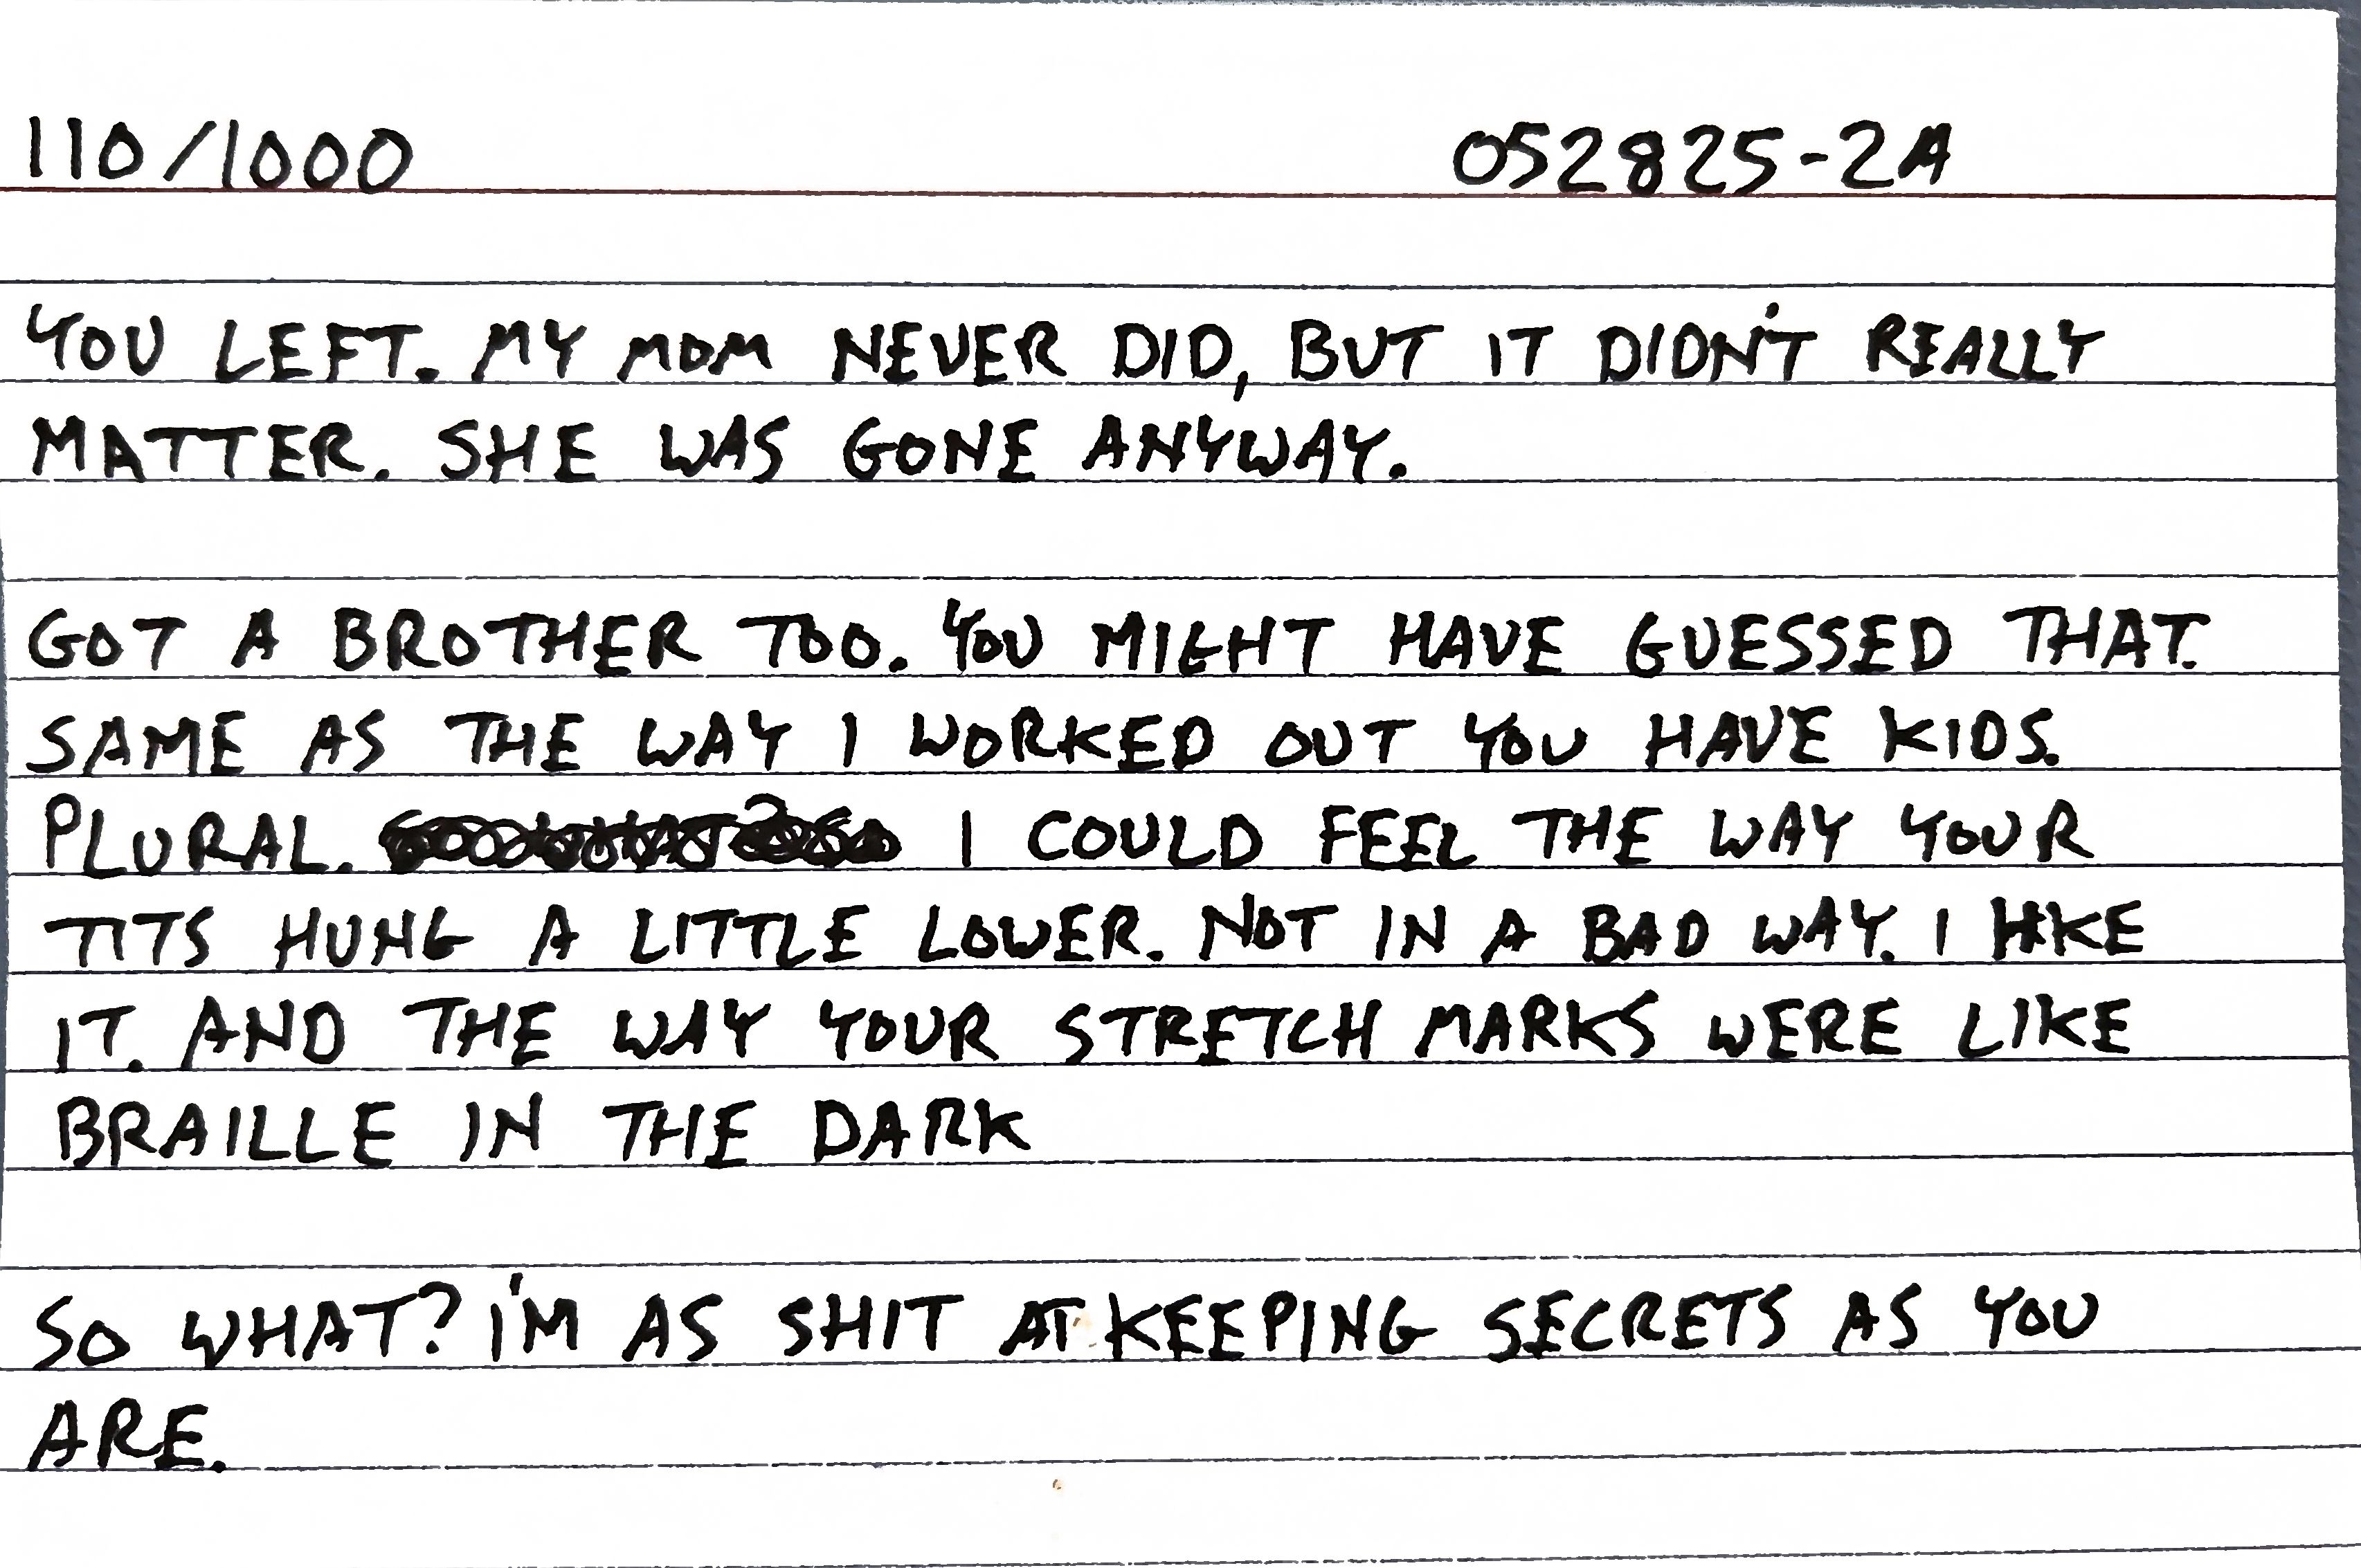 110/1000 052825-2A
YOU LEFT. MY MOM NEVER DID, BUT IT DIDN'T REALLY
MATTER. SHE WAS GONE ANYWAY.
GOT A BROTHER TOO. YOU MIGHT HAVE GUESSED THAT.
SAME AS THE WAY I WORKED OUT YOU HAVE KIDS.
PLURAL. I COULD FEEL THE WAY YOUR
TITS HUNG A LITTLE LOWER. NOT IN A BAD WAY. I LIKE
IT. AND THE WAY YOUR STRETCH MARKS WERE LIKE
BRAILLE IN THE DARK
SO WHAT? I'M AS SHIT AT KEEPING SECRETS AS YOU
ARE.